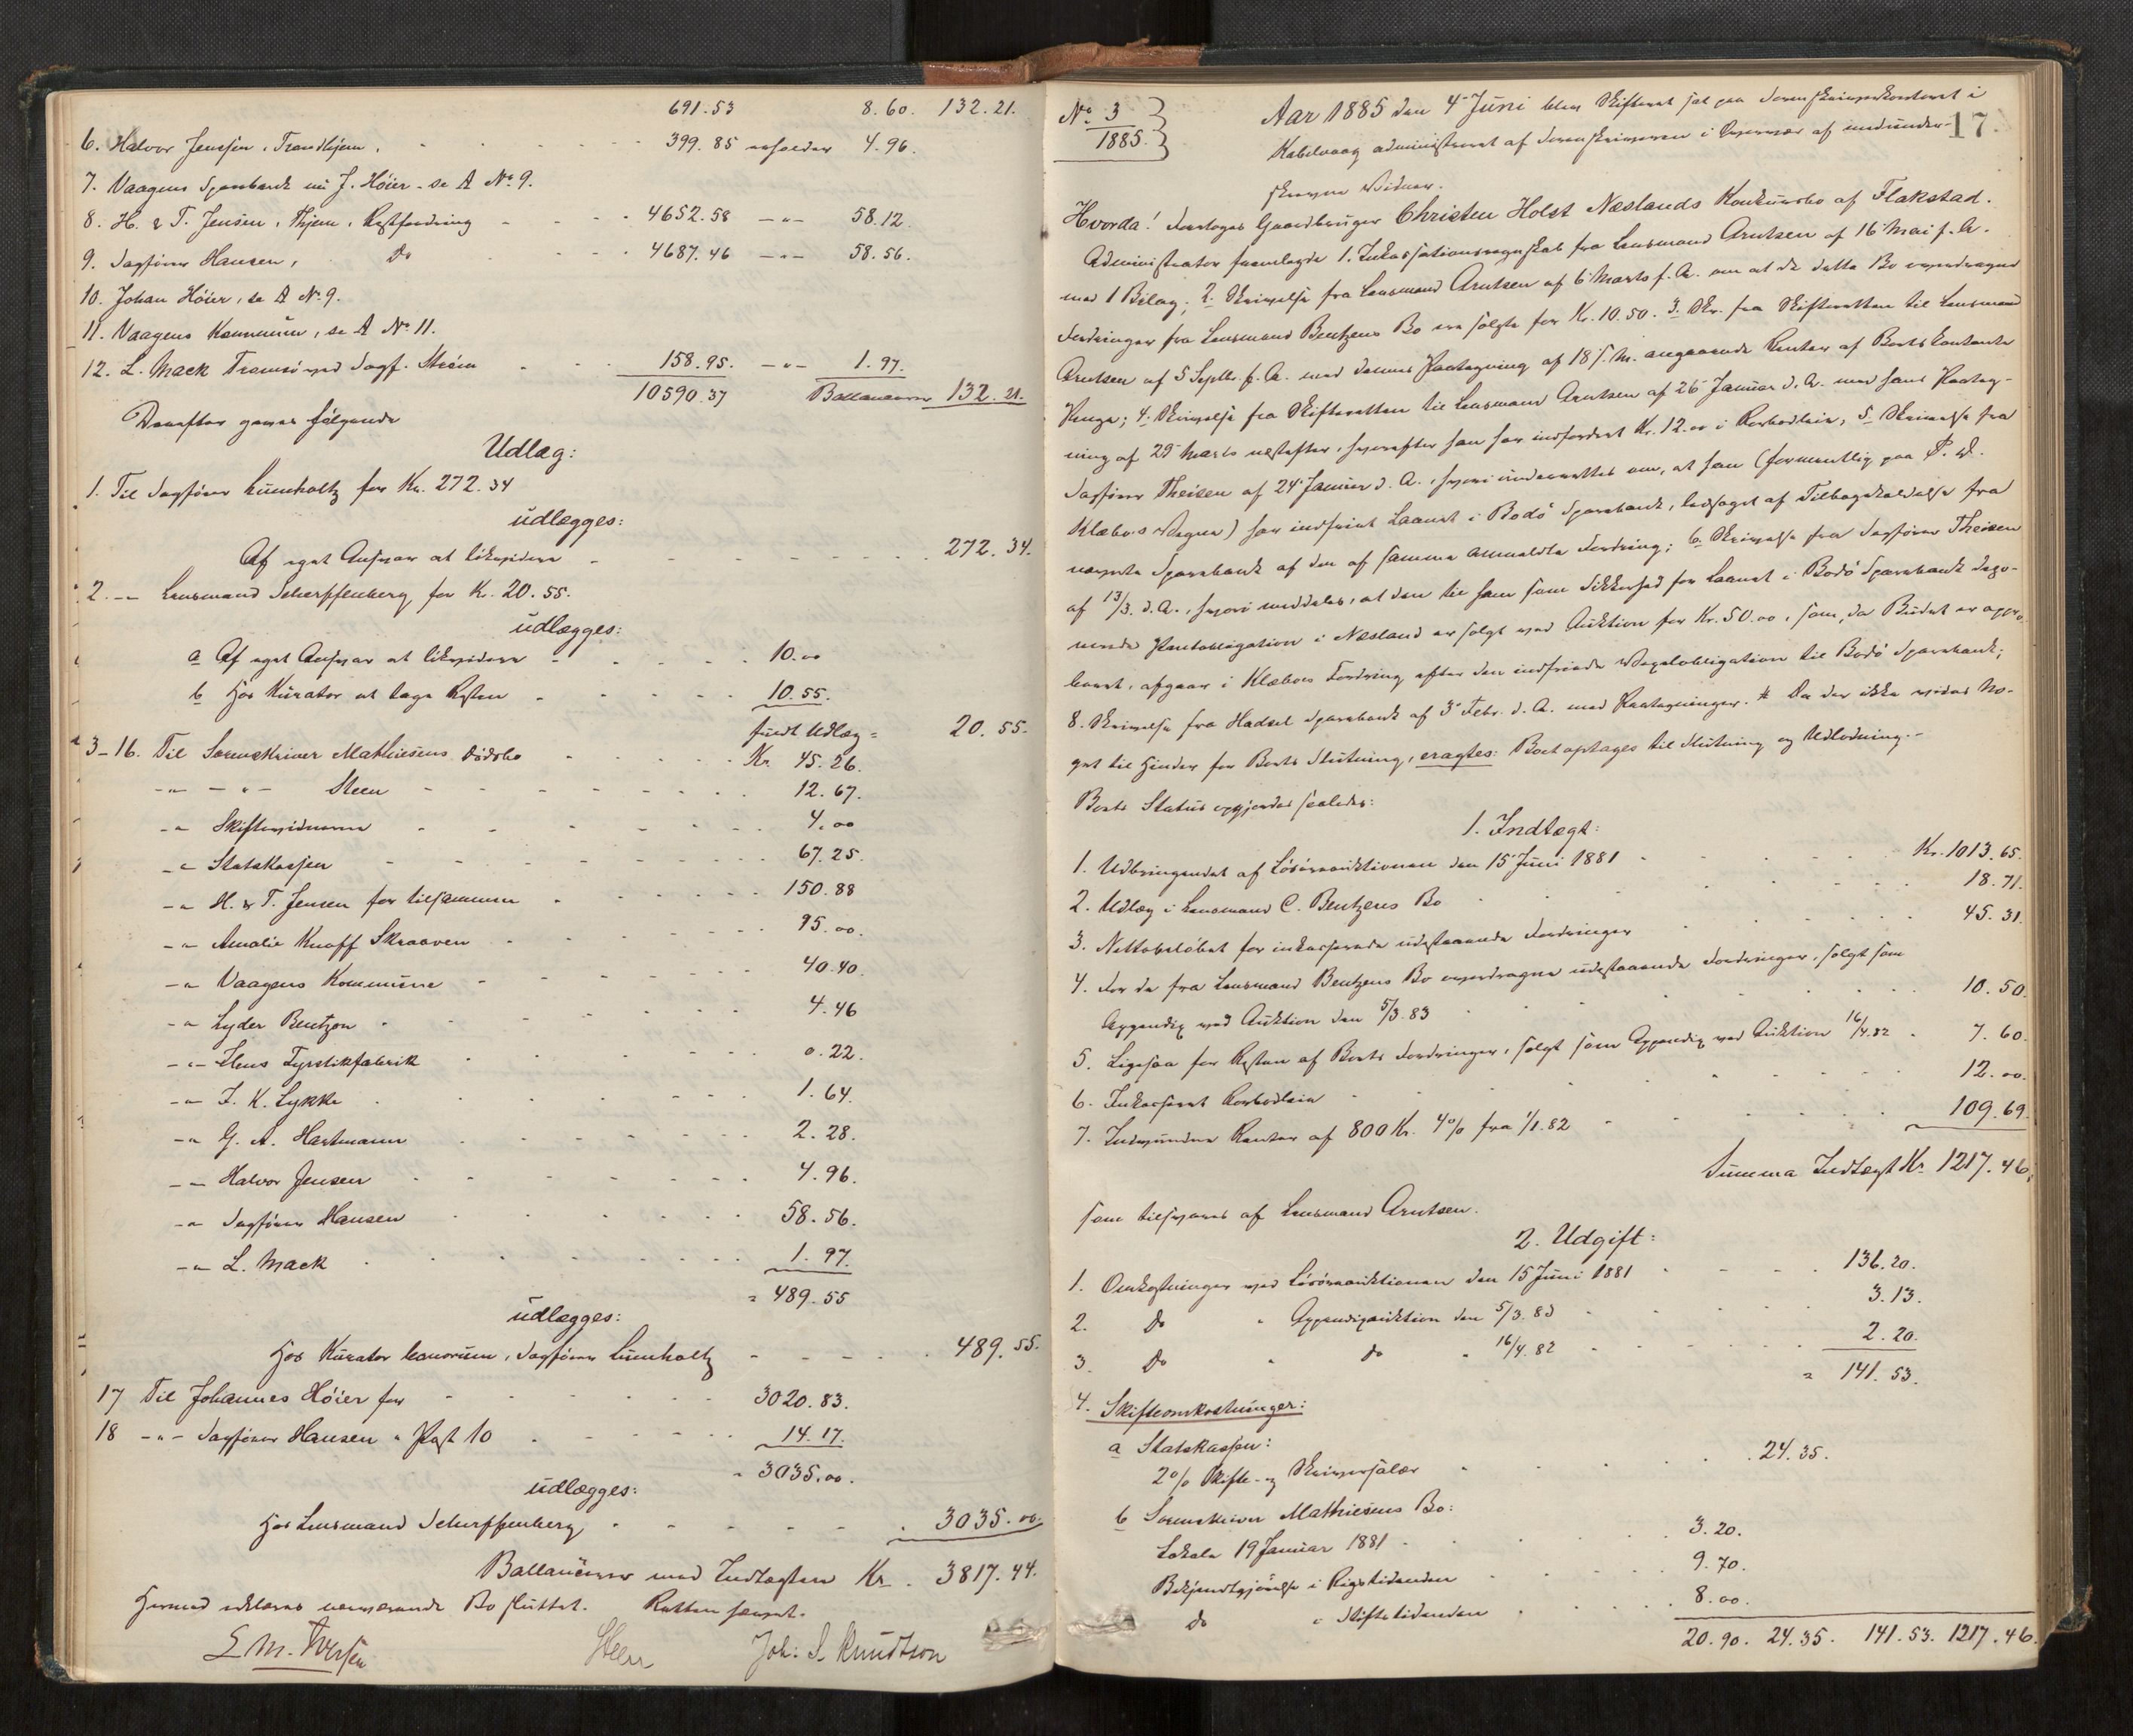 691.53 8.60. 132.21.
6. Halvor Jenssen, Trondhjem, 399.85 erholder 4.96.
7. Vaagens Sparebank nu J. Höier - se A No 9.
8. H. & T. Jensen, Thjem, Restfordring 4652.58 -"- 58.12.
9. Sagfører Hansen, Do 4687.46 -"- 58.56.
10. Johan Höier, se A No 9.
11. Vaagens Kommune, se A No 11.
12. L. Mack Tromsö ved Sagf. Ström 158.95. -"- 1.97.
10590.37 Ballancerer 132.21.
Derefter gjøres følgende
Udlæg:
1. Til Sagfører Lumholtz for Kr. 272.34
udlægges:
Af eget Ansvar at likvidere 272.34.
2. -"- Lensmand Scherffenberg for Kr. 20.55.
udlægges:
a Af eget Ansvar at likvidere 10.00
b Hos Kurator at tage Resten 10.55.
fuldt Udlæg = 20.55.
3-16. Til Sorenskriver Mathiesens Dödsbo Kr. 45.26.
-"- -"- Steen 12.67.
-"- Skiftevidnerne 4.00
-"- Statskassen 67.25.
-"- H. & T. Jensen for tilsammen 150.88
-"- Amalie Knoff Skraaven 95.00.
-"- Vaagens Kommune 40.40.
-"- Lyder Bentzon 4.46
-"- Ilens Fyrstikfabrik 0.22.
-"- J. K. Lykke 1.64.
-"- G. A. Hartmann 2.28.
-"- Halvor Jensen 4.96.
-"- Sagfører Hansen 58.56.
-"- L. Mack 1.97.
= 489.55
udlægges:
Hos Kurator bonorum, Sagfører Lumholtz 489.55.
17 Til Johannes Höier for 3020.83.
18 -"- Sagfører Hansen " Post 10 14.17.
= 3035.00.
udlægges:
Hos Lensmand Scherffenberg 3035.00.
Ballancerer med Indtægten Kr. 3817.44.
Hermed erklæres nærværende Bo sluttet. Retten hævet.
E M. Iversen Steen Joh: S. Knudtson
17.
No 3
1885.
Aar 1885 den 4de Juni blev Skifteret sat paa Sorenskriverkontoret i
Kabelvaag administreret af Sorenskriveren i Overvær af underskrevne Vidner.
Hvorda! Foretoges Gaardbruger Christen Holst Næslands Konkursbo af Flakstad.
Administrator fremlagde 1. Inkassationsregnskab fra Lensmand Arntsen af 16 Mai f. A.
med 1 Bilag; 2. Skrivelse fra Lensmand Arntsen af 6 Marts f. A. om at de dette Bo overdragne
Fordringer fra Lensmand Bentzens Bo ere solgte for Kr. 10.50. 3. Skr. fra Skifteretten til Lensmand
Arntsen af 5 Septbr. f. A. med dennes Paategning af 18 s. M. angaaende Renter af Boets kontante
Penge; 4. Skrivelse fra Skifteretten til Lensmand Arntsen af 26 Januar d. A. med hans Paateg-
ning af 29 Marts næstefter, hvorefter han har indfordret Kr. 12.00 i Rorbodleie, 5. Skrivelse fra
Sagfører Theisen af 24 Januar d. A., hvori underrettes om, at han (formentlig paa P. W.
Klæboes Vegne) har indfriet Laanet i Bodö Sparebank, ledsaget af Tilbagekaldelse fra
nævnte Sparebank af den af samme anmeldte Fordring; 6. Skrivelse fra Sagfører Theisen
af 13/3. d. A., hvori meddeles, at den til ham som Sikkerhed for Laanet i Bodö Sparebank depo-
nerede Pantobligation i Næsland er solgt ved Auktion for Kr. 50.00, som, da Budet er appro-
beret, afgaar i Klæboes Fordring efter den indfriede Vexelobligation til Bodö Sparebank;
8. Skrivelse fra Hadsel Sparebank af 3 Febr. d. A. med Paategninger. Da der ikke vides No-
get til Hinder for Boets Slutning, eragtes: Boet optages til Slutning og Udlodning.-
Boets Status opgjordes saaledes:
1. Indtægt:
1. Udbringendet af Lösöreauktionen den 15 Juni 1881 Kr. 1013.65.
2. Udlæg i Lensmand C. Bentzens Bo 18.71.
3. Nettobeløbet for inkasserede udestaaende Fordringer 45.31.
4. For de fra Lensmand Bentzens Bo overdragne udestaaende Fordringer, solgt som
Appendix ved Auktion den 5/3.83 10.50.
5. Ligesaa for Resten af Boets Fordringer, solgt som Appendix ved Auktion 16/4.82 7.60.
6. Inkasseret Rorbodleie 12.00.
7. Indvundne Renter af 800 Kr. 4% fra 1/1.82 109.69.
Summa Indtægt Kr. 1217.46,
som tilsvares af Lensmand Arntsen.
2. Udgift:
1. Omkostninger ved Lösöreauktionen den 15 Juni 1881 136.20.
2. Do " Appendixauktion den 5/3.83 3.13.
3. Do " do " 16/4.82 2.20.
= 141.53.
4. Skifteomkostninger:
a Statskassen:
2% Skifte- og Skriversalær 24.35.
b Sorenskriver Mathiesens Bo:
Lokale 19 Januar 1881 3.20.
Bekjendtgjørelse i Rigstidenden 9.70.
do i Stiftstidenden 8.00.
20.90. 24.35. 141.53. 1217.46.